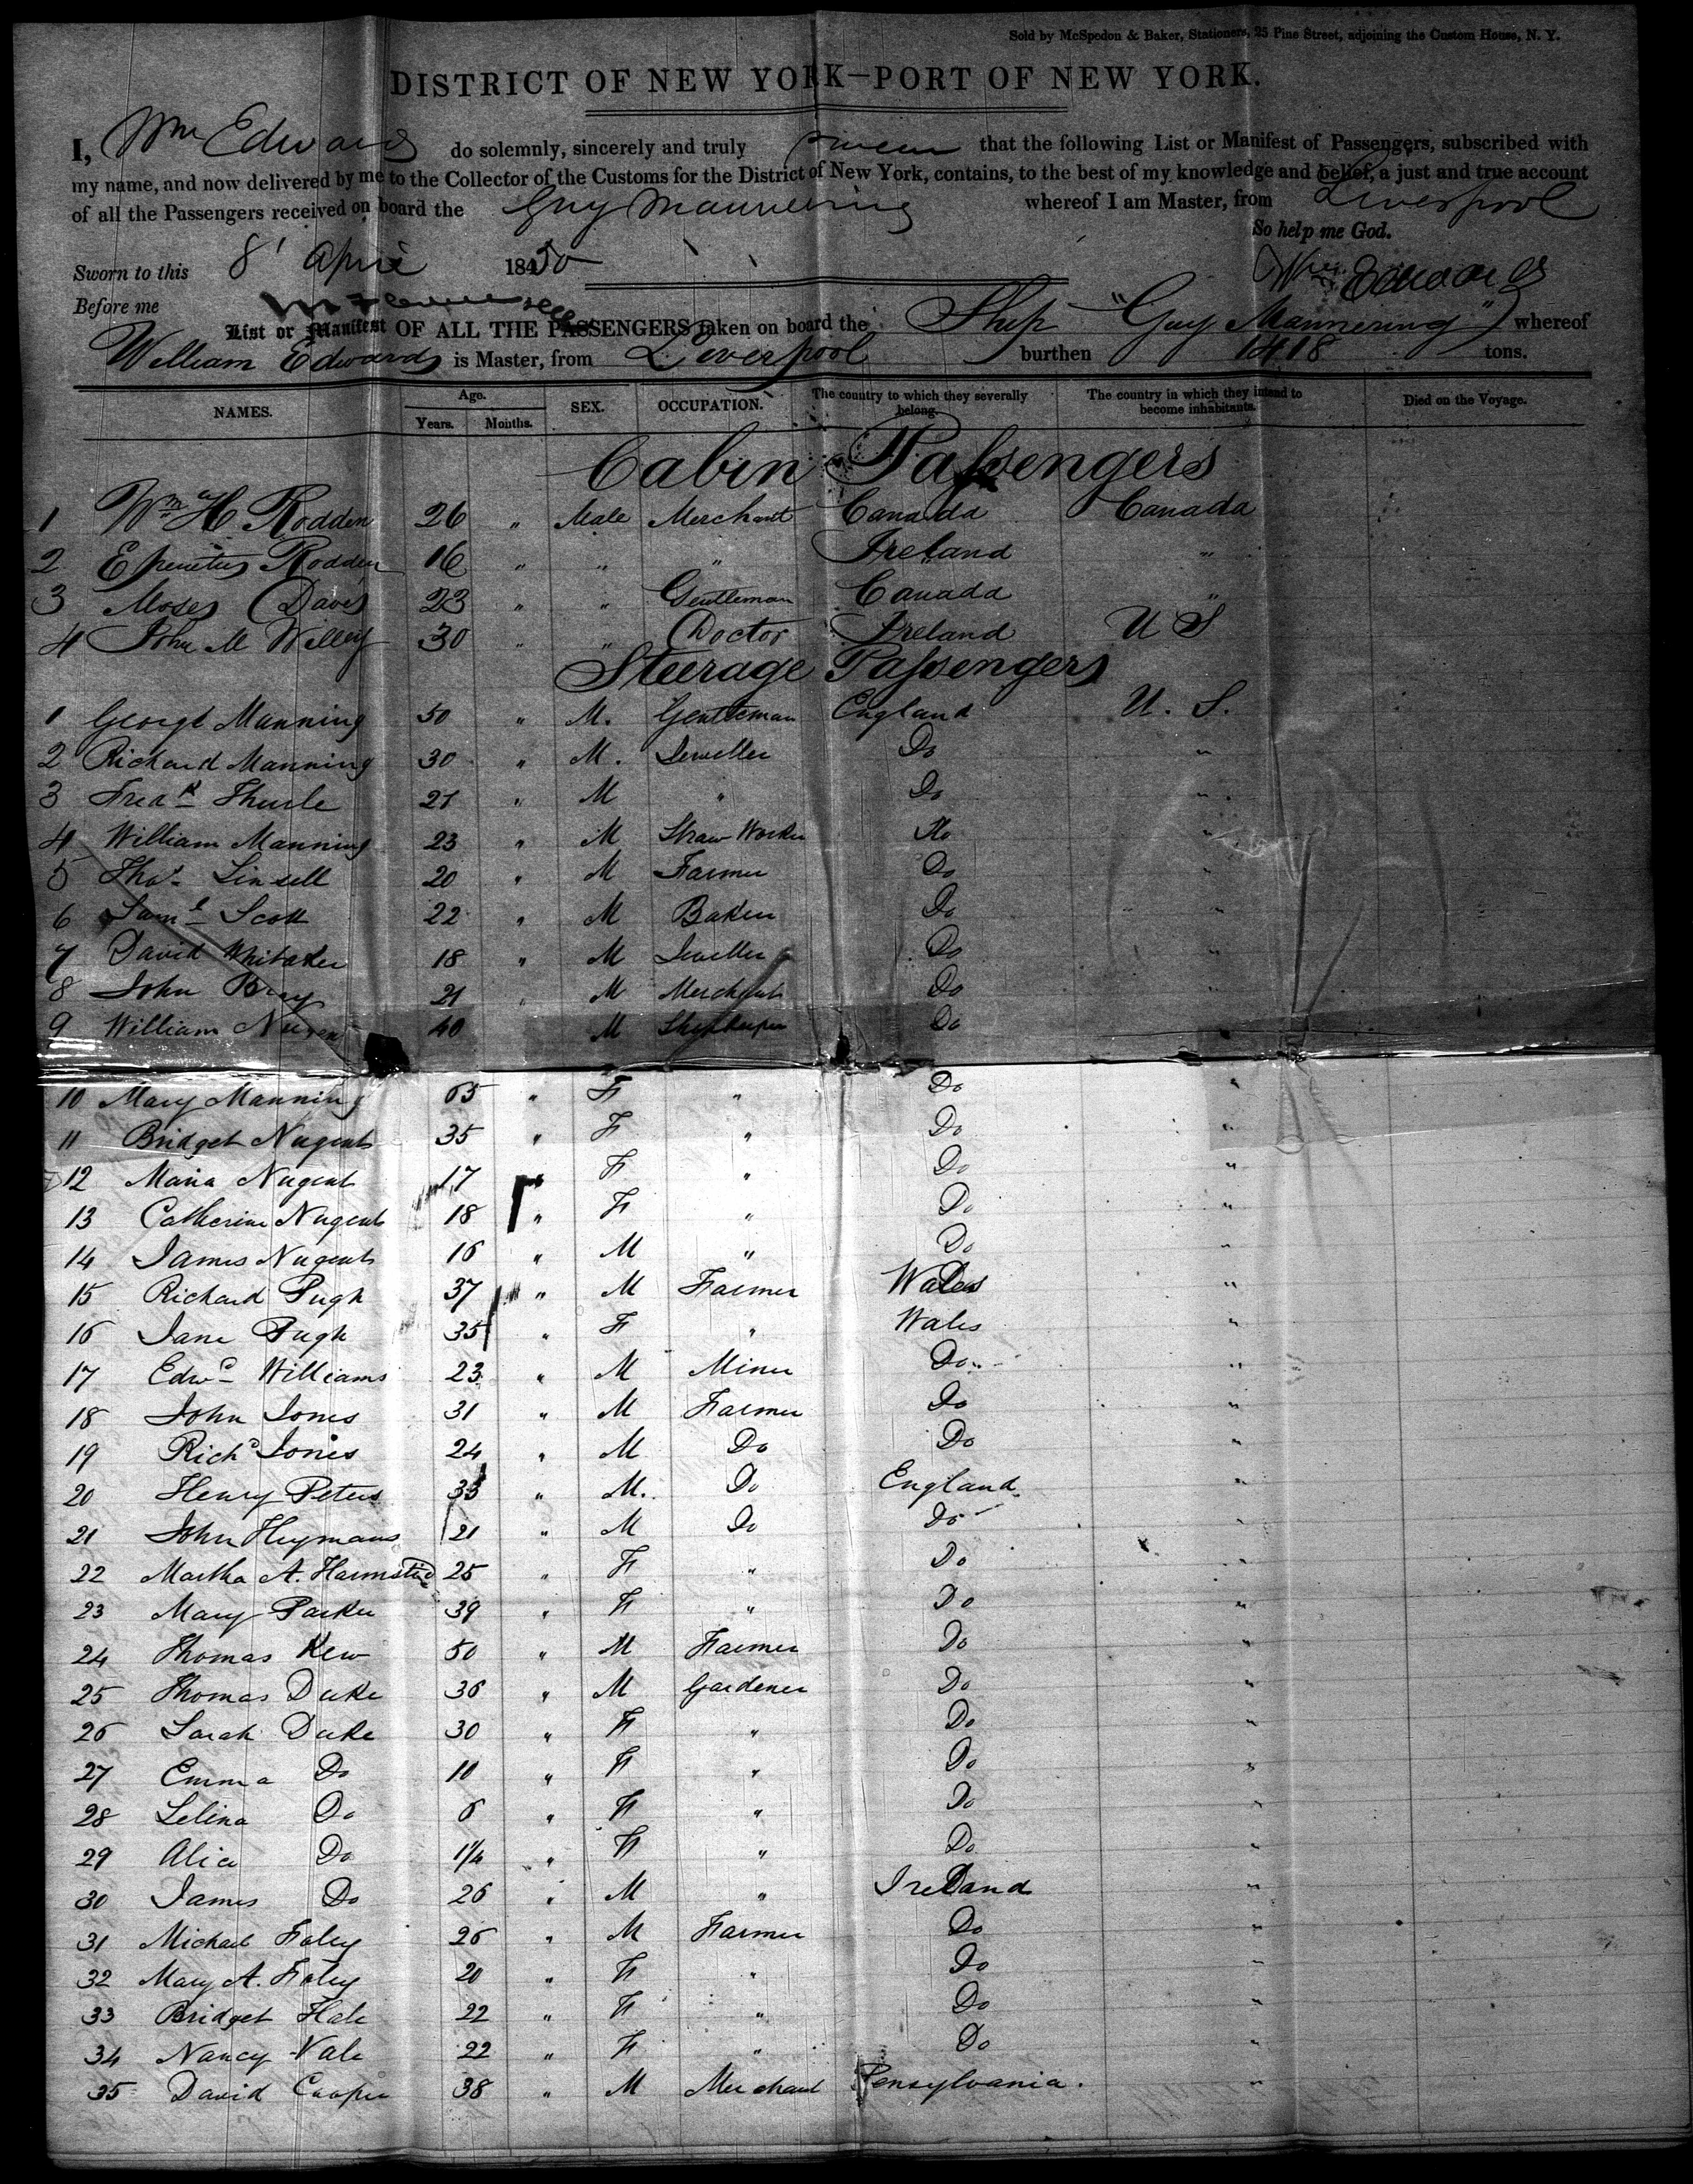 Sold by McSpedon & Baker, Stationers, 25 Pine Street, adjoining the Custom House, N. Y.
DISTRICT OF NEW YORK—PORT OF NEW YORK.
I, Wm Edwards do solemnly, sincerely and truly swear that the following List or Manifest of Passengers, subscribed with
my name, and now delivered by me to the Collector of the Customs for the District of New York, contains, to the best of my knowledge and belief, a just and true account
of all the Passengers received on board the Guy Mannering whereof I am Master, from Liverpool
So help me God.
Sworn to this 8' April 1850
Wm Edwards
Before me
List or Manifest OF ALL THE PASSENGERS taken on board the Ship "Guy Mannering" whereof
William Edwards is Master, from Liverpool burthen 1418 tons.
NAMES. Age. Years. Months. SEX. OCCUPATION. The country to which they severally belong. The country in which they intend to become inhabitants. Died on the Voyage.
Cabin Passengers
1 Wm H Rodden 26 " Male Merchant Canada Canada
2 Epenetus Rodden 16 " " " Ireland "
3 Moses Davis 23 " " Gentleman Canada "
4 John M Willey 30 " " Doctor Ireland U S
Steerage Passengers
1 George Manning 50 " M. Gentleman England U. S.
2 Richard Manning 30 " M. Jeweller Do "
3 Fredk Thurle 21 " M " Do "
4 William Manning 23 " M Straw Worker Do "
5 Thos Linsell 20 " M Farmer Do "
6 Saml Scott 22 " M Baker Do "
7 David Whitaker 18 " M Jeweller Do "
8 John Bray 21 " M Merchant Do "
9 William Nugent 40 M Shopkeeper Do "
10 Mary Manning 65 " F " Do "
11 Bridget Nugent 35 " F " Do "
12 Maria Nugent 17 " F " Do "
13 Catherine Nugent 18 " F " Do "
14 James Nugent 16 " M " Do "
15 Richard Pugh 37 " M Farmer Wales "
16 Jane Pugh 35 " F " Wales "
17 Edwd Williams 23 " M Miner Do "
18 John Jones 31 " M Farmer Do "
19 Richd Jones 24 " M Do Do "
20 Henry Peters 33 " M. Do England "
21 John Heymans 21 " M Do Do "
22 Martha A. Harmstid 25 " F " Do "
23 Mary Parker 39 " F " Do "
24 Thomas Kew 50 " M Farmer Do "
25 Thomas Duke 36 " M Gardener Do "
26 Sarah Duke 30 " F " Do "
27 Emma Do 10 " F " Do "
28 Selina Do 6 " F " Do "
29 Alice Do 1/4 " F " Do "
30 James Do 26 " M " Ireland "
31 Michael Foley 26 " M Farmer Do "
32 Mary A. Foley 20 " F " Do "
33 Bridget Hale 22 " F " Do "
34 Nancy Vale 22 " F " Do "
35 David Cooper 38 " M Merchant Pensylvania. "